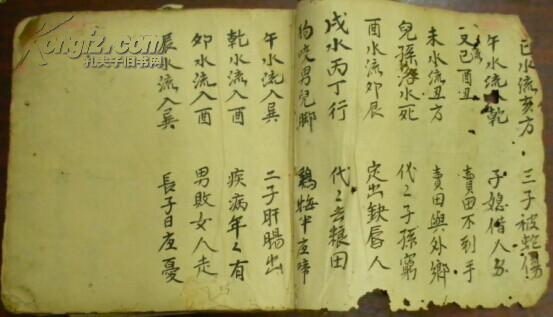 巳水流亥方 三子被蛇傷
午水流乾 子媳
又己酉丑 賣田不到手
未水流丑方 賣田與外鄉
兒孫落水死 代〻子孫窮
酉水流卯辰 定出缺唇人
戌水丙丁行 代〻去粮田
狗咬男兒脚 鷄半夜啼
午水流入巽 二子肝腸出
乾水流入酉 疾病年〻有
卯水流入酉 男敗女人走
辰水流入巽 長子日夜憂
Kongfz.com
孔夫子旧书网